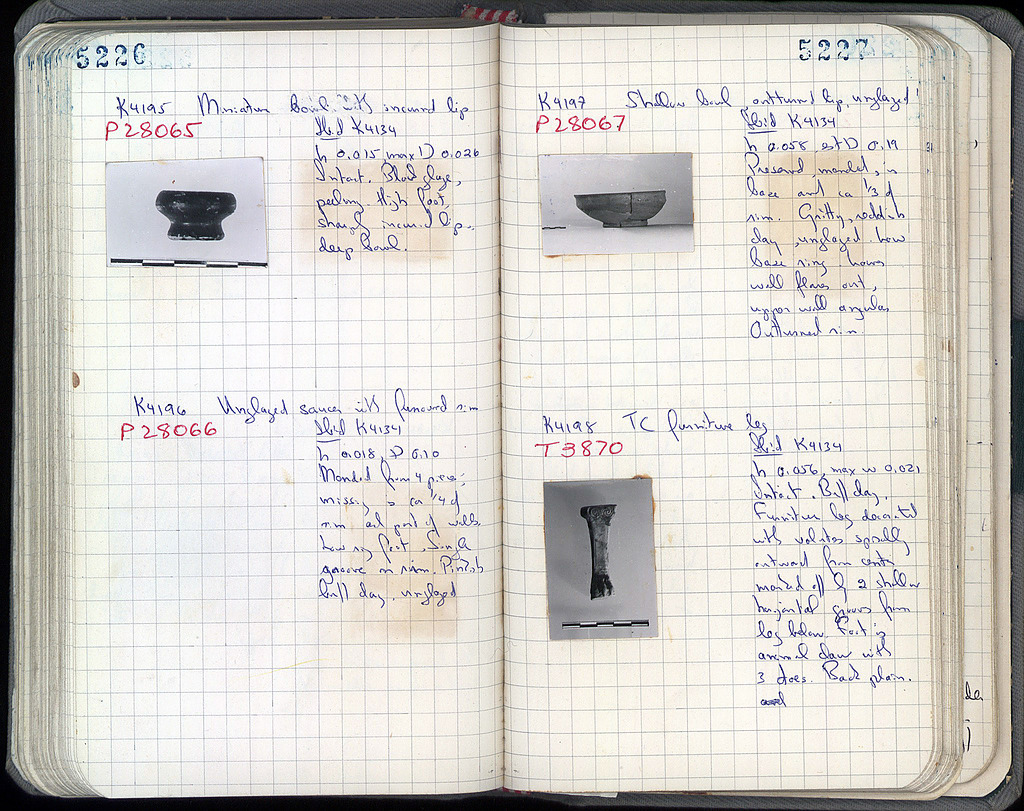 5226
K4195 Miniature bowl with incurved lip
P28065
Ibid K4134
h 0.015, max D 0.026
Intact. Black glaze,
peeling. High foot,
sharply incurved lip,
deep bowl.
K4196 Unglazed saucer with grooved rim
P28066
Ibid K4134
h 0.018, D 0.10
Mended from 4 pieces;
missing is ca 1/4 of
rim and part of wall.
Low ring foot. Single
groove on rim. Pinkish
buff clay, unglazed
5227
K4197 Shallow bowl, outturned lip, unglazed
P28067
Ibid K4134
h 0.058, est D 0.19
Preserved, mended, is
base and ca 1/3 of
rim. Gritty, reddish
clay, unglazed. Low
base ring. Lower
wall flares out,
upper wall angular.
Outturned rim.
K4198 TC furniture leg
T3870
Ibid K4134
h 0.056, max w 0.021
Intact. Buff clay.
Furniture leg decorated
with volutes spirally
outward from center
marked off by 2 shallow
horizontal grooves from
leg below. Foot is
animal claw with
3 toes. Back plain.